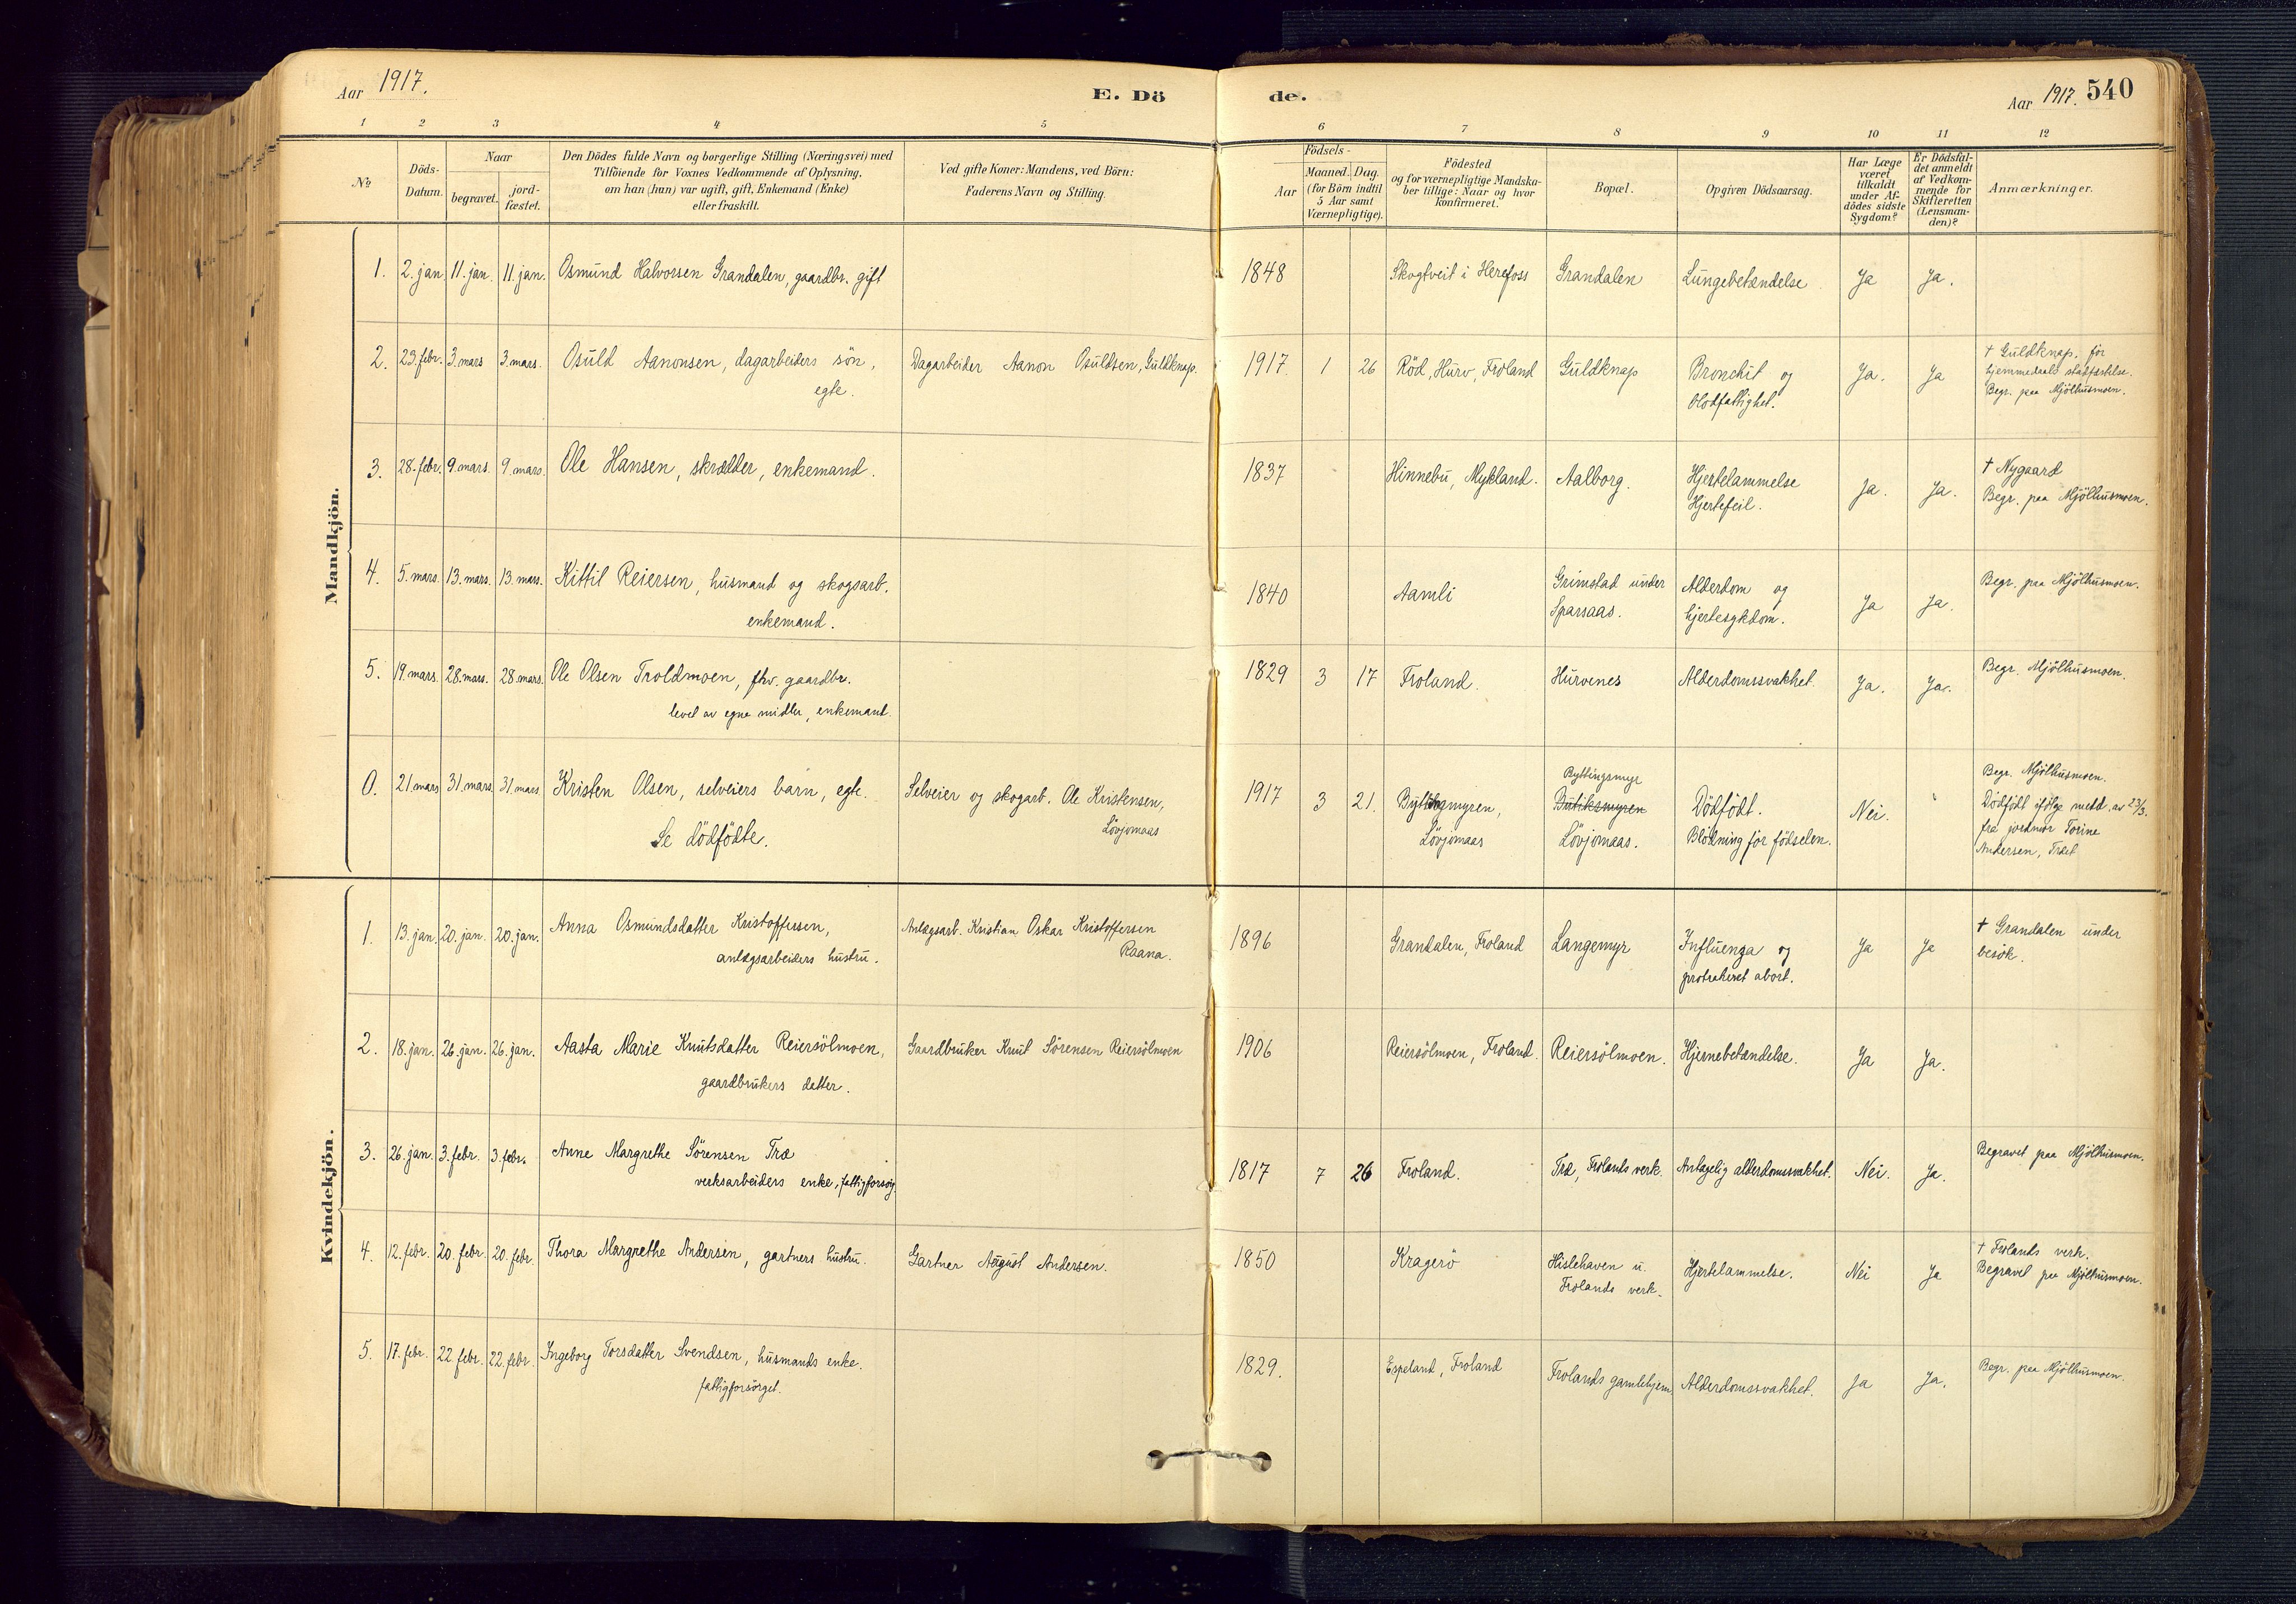 Aar 1917.
E. Dö
de.
Aar 1917. 540
1 2 3 4 5 6 7 8 9 10 11 12
No
Döds-
Datum.
Naar
begravet.
jord-
fæstet.
Den Dödes fulde Navn og borgerlige Stilling (Næringsvei) med
Tilföiende for Voxnes Vedkommende af Oplysning,
om han (hun) var ugift, gift, Enkemand (Enke)
eller fraskilt.
Ved gifte Koner: Mandens, ved Börn:
Faderens Navn og Stilling.
Födsels-
Aar
Maaned. Dag.
(for Börn indtil
5 Aar samt
Værnepligtige).
Födested
og for værnepligtige Mandska-
ber tillige: Naar og hvor
konfirmeret.
Bopæl.
Opgiven Dödsaarsag.
Har Læge
været
tilkaldt
under Af-
dödes sidste
Sygdom?
Er Dödsfal-
det anmeldt
af Vedkom-
mende for
Skifteretten
(Lensman-
den)?
Anmærkninger.
Mandkjön.
1. 2. jan. 11. jan. 11. jan. Osmund Halvorsen Grandalen, gaardbr. gift
1848 Skogtveit i Herefoss Grandalen Lungebetændelse Ja Ja.
2. 23. febr. 3. mars 3. mars. Osuld Aanonsen, dagarbeiders sön,
egte.
Dagarbeider Aanon Osuldsen, Guldknap.
1917 1 26 Röd, Hurv, Froland Guldknap Bronchit og
blodfattighet.
Ja. Ja
† Guldknap. før
hjemmedaab
Begr. paa Mjölhusmoen.
3. 28. febr. 9. mars. 9. mars. Ole Hansen, skrædder, enkemand.
1837 Hinnebu, Mykland. Aalborg. Hjertelammelse
Hjertefeil.
Ja. Ja.
† Nygaard
Begr. paa Mjölhusmoen.
4. 5. mars. 13. mars. 13. mars. Kittil Reiersen, husmand og skogsarb.
enkemand.
1840 Aamli Grimstad under
Sparsaas.
Alderdom og
hjertesykdom.
Ja Ja.
Begr. paa Mjölhusmoen.
5. 19. mars. 28. mars. 28. mars. Ole Olsen Troldmoen, fhv. gaardbr.
levet av egne midler, enkemand.
1829 3 17 Froland. Hurvenes Alderdomssvakhet. Ja. Ja.
Begr. Mjölhusmoen.
0. 21. mars 31. mars 31. mars Kristen Olsen, selveiers barn, egte.
Se dödfödte.
Selveier og skogarb. Ole Kristensen,
Lövjomaas
1917 3 21. Byttingmyren,
Lövjomaas
Byttingsmyr
Butiksmyren
Lövjomaas.
Dödfödt.
Blödning för födselen.
Nei.
Begr. Mjölhusmoen.
Dödfödt ifölge meld. av 23/3.
fra jordmor Torine
Andersen, Træt
Kvindekjön.
1. 13. jan. 20. jan. 20. jan. Anna Osmundsdatter Kristoffersen,
anlægsarbeiders hustru.
Anlægsarb. Kristian Oskar Kristoffersen
Raana.
1896 Grandalen, Froland Langemyr Influenza og
protrakeret abort.
Ja Ja
† Grandalen under
besök.
2. 18. jan. 26. jan. 26. jan. Aasta Marie Knutsdatter Reiersölmoen,
gaardbrukers datter.
Gaardbruker Knut Sörensen Reiersölmoen
1906 Reiersölmoen, Froland. Reiersölmoen. Hjernebetændelse. Ja Ja.
3. 26. jan. 3. febr. 3. febr. Anne Margrethe Sörensen Træ
verksarbeiders enke, fattigforsörg.
1817 7 26 Froland. Træ, Frolands verk. Antagelig alderdomssvakhet. Nei. Ja.
Begravet paa Mjölhusmoen.
4. 12. febr. 20. febr. 20. febr. Thora Margrethe Andersen, gartners hustru.
Gartner August Andersen.
1850 Kragerö Hislehaven u.
Frolands verk.
Hjertelammelse. Nei Ja
† Frolands verk.
Begravet paa Mjölhusmoen.
5. 17. febr. 22. febr. 22. febr. Ingeborg Torsdatter Svendsen, husmands enke.
fattigforsörget.
1829. Espeland, Froland Frolands gamlehjem Alderdomssvakhet. Ja Ja.
Begr. paa Mjölhusmoen.